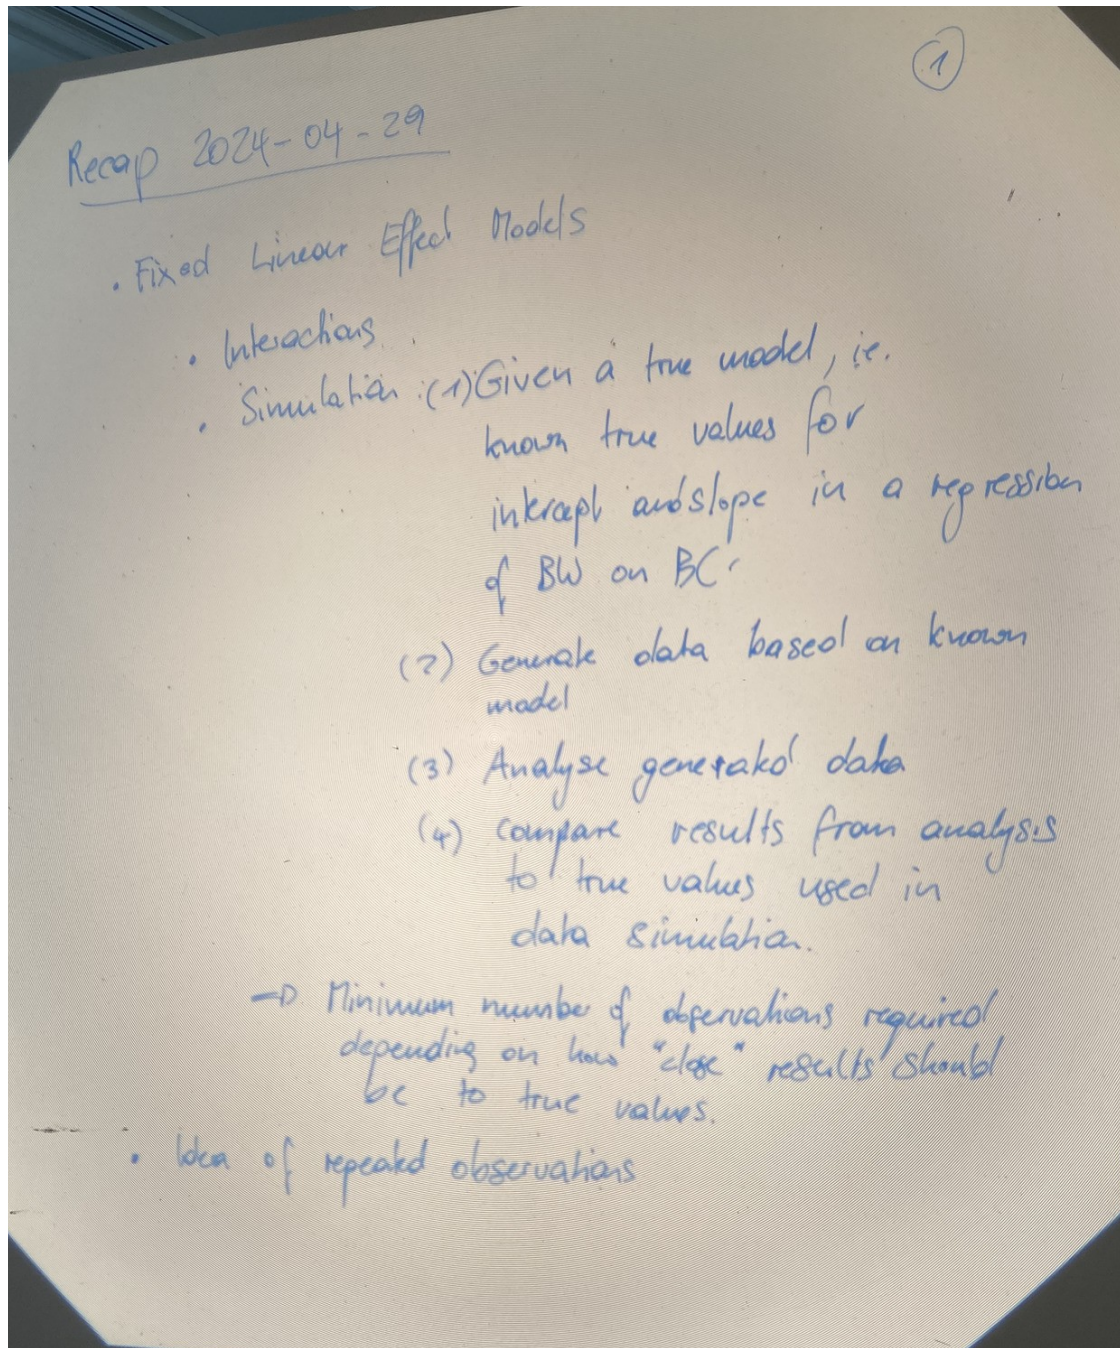 1
Recap 2024-04-29
• Fixed Linear Effect Models
• Interactions
• Simulation : (1) Given a true model, i.e.
known true values for
intercept and slope in a regression
of BW on BC.
(2) Generate data based on known
model
(3) Analyse generated data
(4) Compare results from analysis
to true values used in
data simulation.
→ Minimum number of observations required
depending on how "close" results should
be to true values.
• Idea of repeated observations